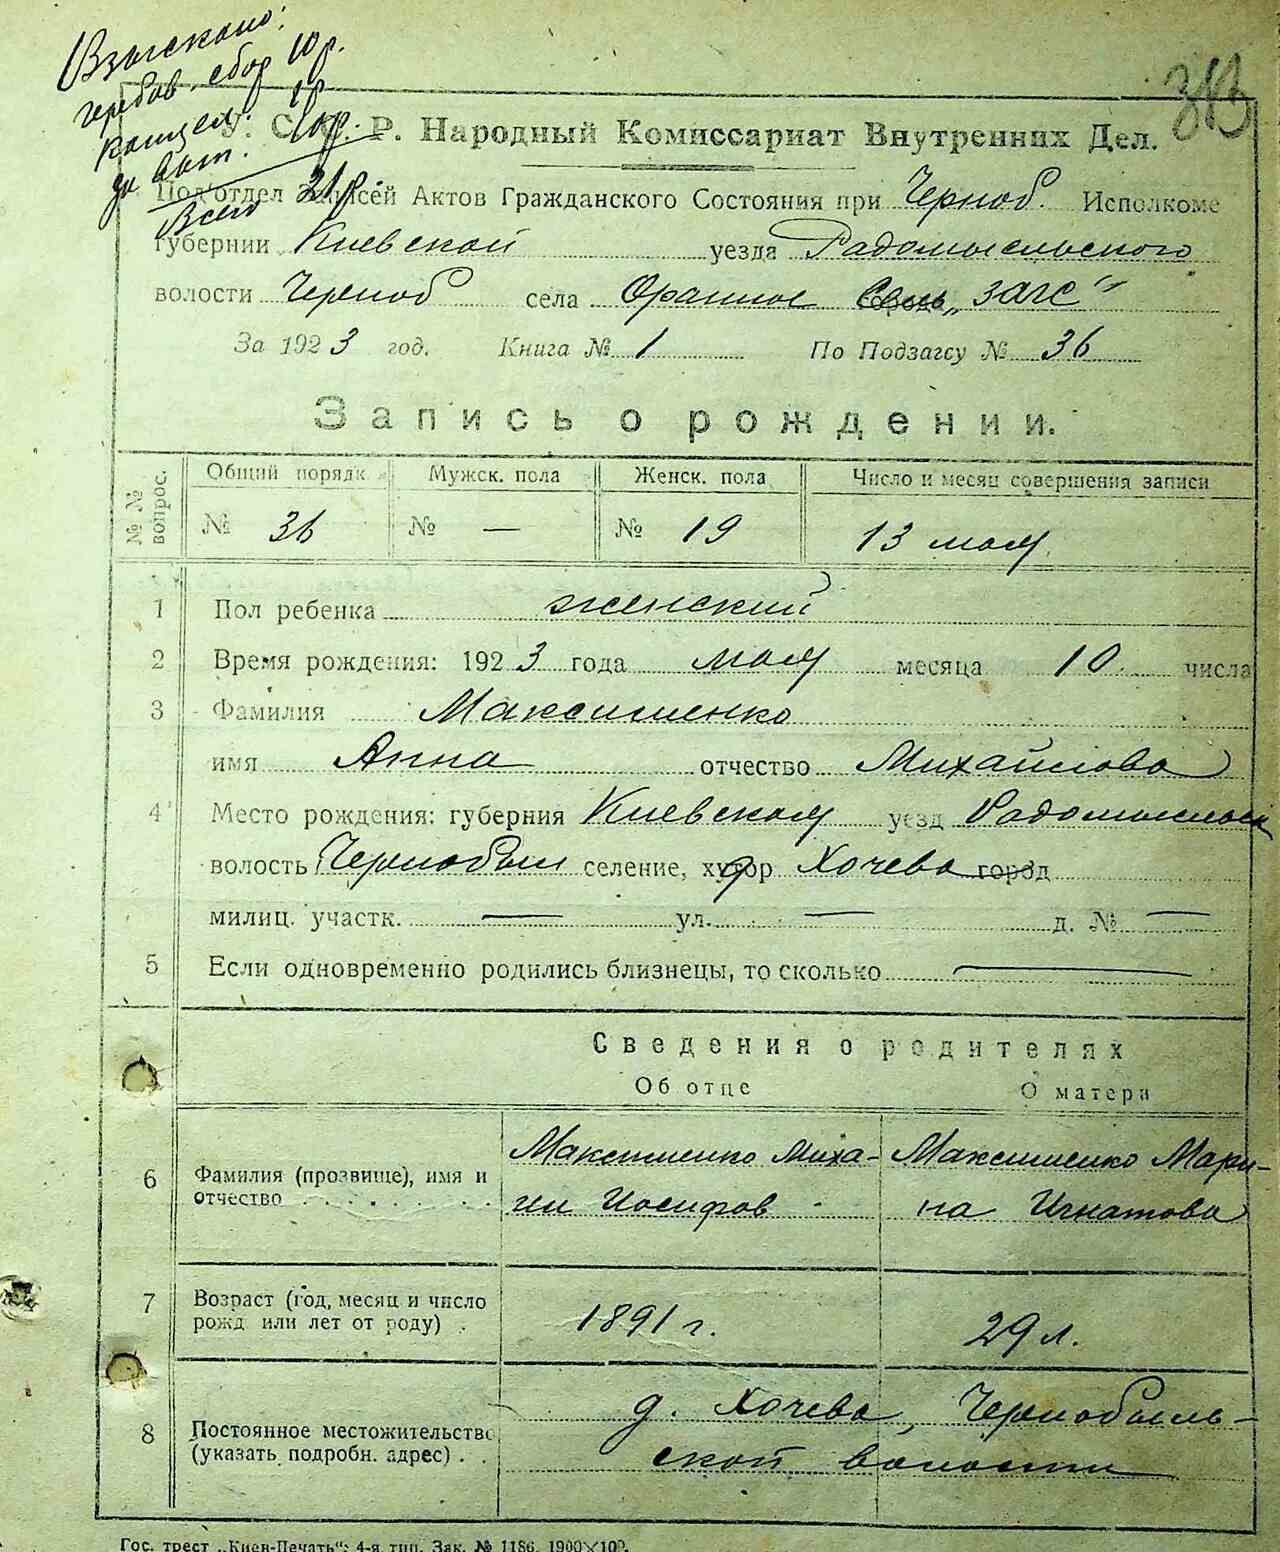 Взыскано:
гербов. сбор 10 р.
канцел. 1 р.
за бат. 10 р.
Всего 21 р.
313
У. С. С. Р. Народный Комиссариат Внутренних Дел.
Под'отдел Записей Актов Гражданского Состояния при Черноб. Исполкоме
губернии Киевской уезда Радомысльского
волости Черноб села Оранное "ЗАГС"
За 1923 год. Книга № 1 По Подзагсу № 36
Запись о рождении.
№ № вопрос. Общий порядк Мужск. пола Женск. пола Число и месяц совершения записи
№ 36 № — № 19 13 мая
1 Пол ребенка женский
2 Время рождения: 1923 года мая месяца 10 числа
3 Фамилия Максименко
имя Анна отчество Михайлова
4 Место рождения: губерния Киевская уезд Радомысльск
волость Чернобыл селение, хутор д Хочева город
милиц. участк. — ул. — д. № —
5 Если одновременно родились близнецы, то сколько —
Сведения о родителях
Об отце О матери
Максименко Миха- Максименко Мари-
6 Фамилия (прозвище), имя и
отчество ил Иосифов на Игнатова
7 Возраст (год, месяц и число
рожд или лет от роду) 1891 г. 29 л.
д. Хочева, Чернобыль-
8 Постоянное местожительство
(указать подробн. адрес) ской волости
Гос. трест „Киев-Печать“; 4-я тип. Зак. № 1186. 1900×100.